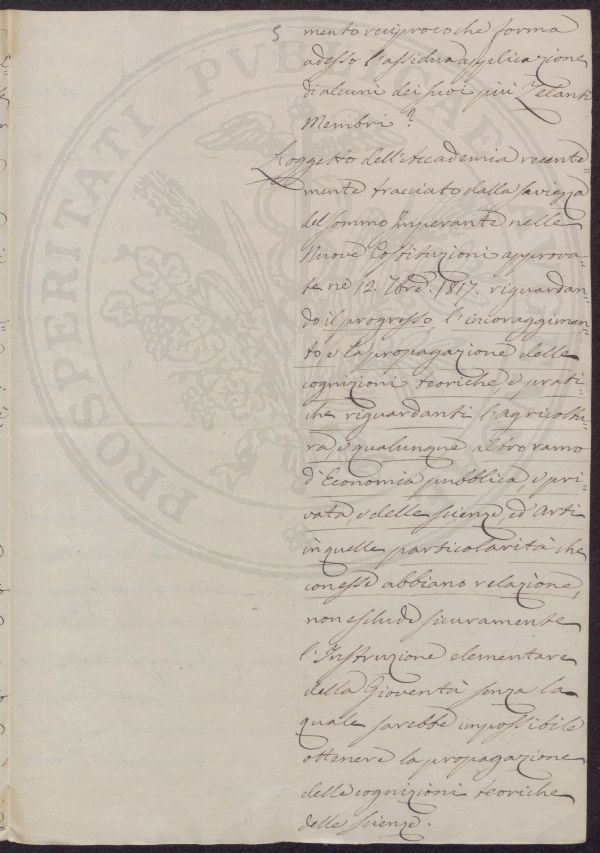 5
mento reciproco che forma
adesso l'assidua applicazione
di alcuni dei suoi più Zelanti
Membri?
L'oggetto dell'Accademia recente-
mente tracciato dalla saviezza
del sommo Imperante nelle
Nuove Costituzioni approva-
te ne' 12. 7bre. 1817. riguardan-
do il progresso, l'incoraggimen-
to, e la propagazione delle
cognizioni teoriche e prati-
che riguardanti l'agricoltu-
ra, e qualunque altro ramo
d'Economia pubblica, e pri-
vata, e delle scienze, ed Arti
in quelle particolarità che
con esse abbiano relazione,
non esclude sicuramente
l'Instruzione elementare
della Gioventù senza la
quale sarebbe impossibile
ottenere la propagazione
delle cognizioni teoriche
delle scienze.
PROSPERITATI PVBLICAE